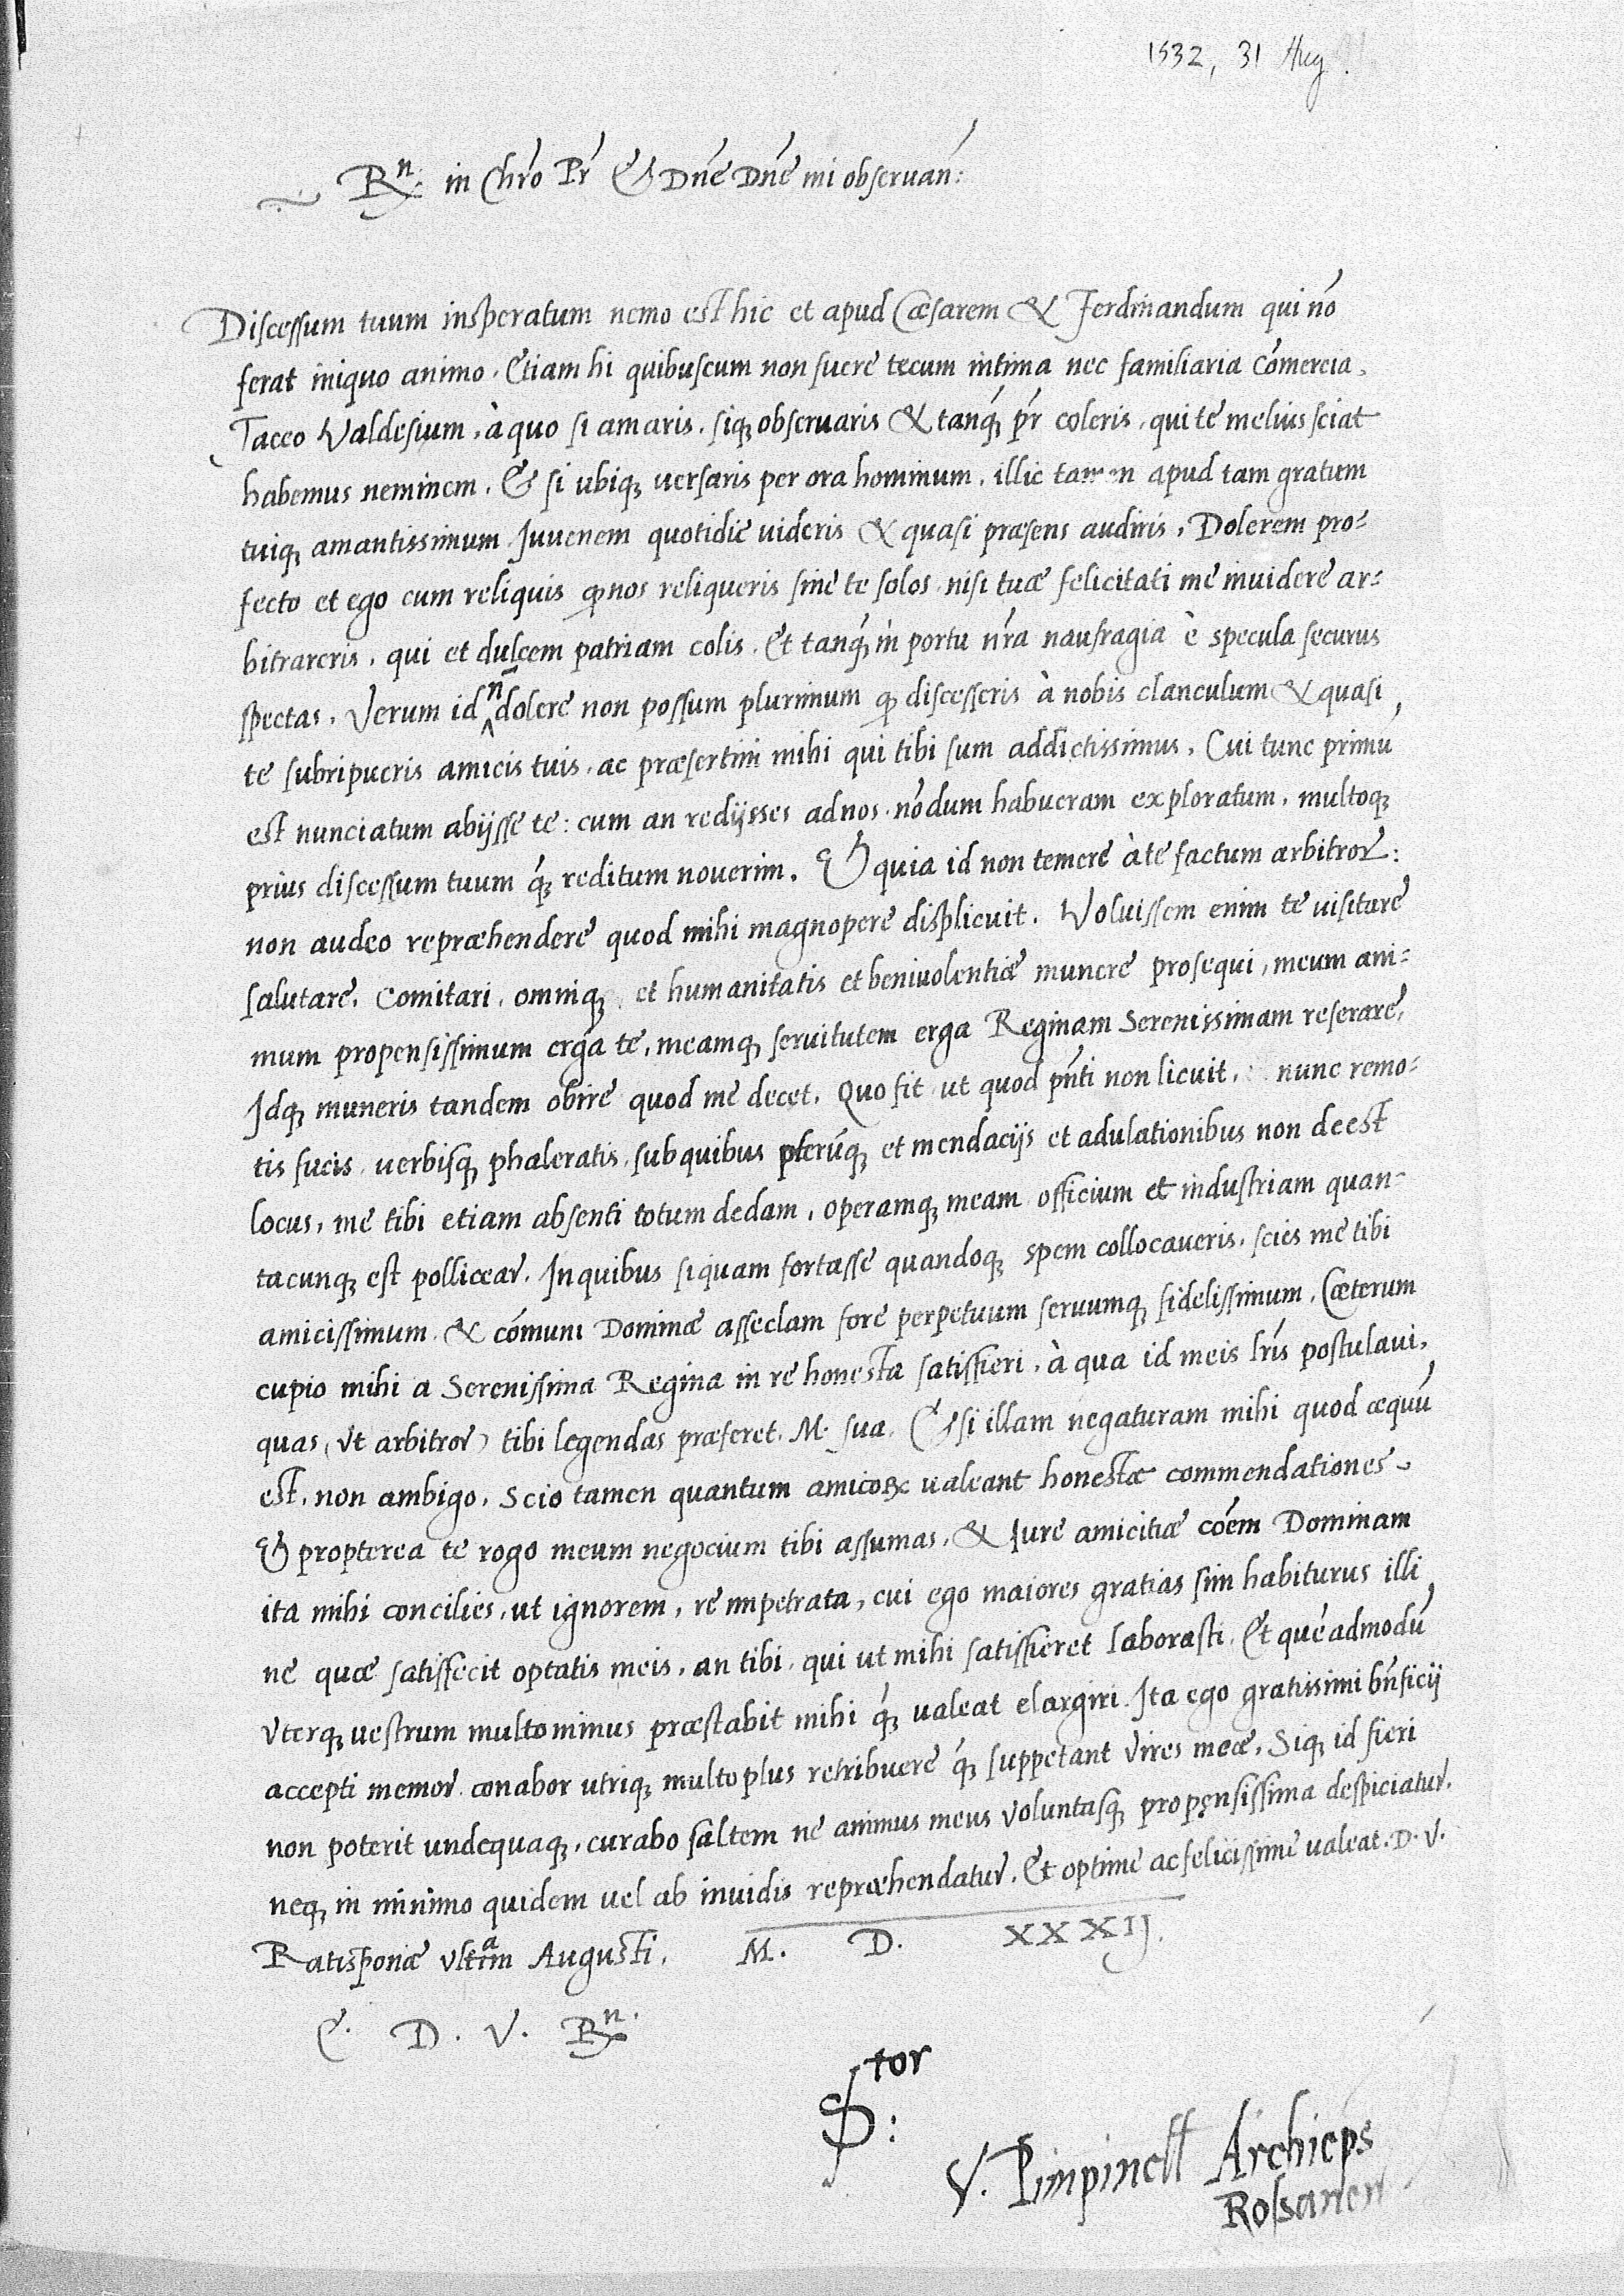 1532, 31 Aug.
Rn: in Chro Pr & Dne Dne mi observan:
Discessum tuum insperatum nemo est hic et apud Cæsarem & Ferdinandum qui nō
ferat iniquo animo. Etiam hi quibuscum non fuere tecum intima nec familiaria cōmercia.
Taceo Valdesium, à quo si amaris, siq; observaris & tanq̄; pr̄ coleris, qui te melius sciat
habemus neminem. Et si ubiq; versaris per ora hominum, illic tamen apud tam gratum
tuiq; amantissimum Juvenem quotidie videris & quasi præsens audiris. Dolerem pro-
fecto et ego cum reliquis ꝙ nos reliqueris sine te solos, nisi tuæ felicitati me invidere ar-
bitrareris, qui et dulcem patriam colis, Et tanq̄; in portu nr̄a naufragia è specula securus
spectas. Verum id n̄ dolere non possum plurimum ꝙ discesseris à nobis clanculum & quasi
te subripueris amicis tuis, ac præsertim mihi qui tibi sum addictissimus. Cui tunc primū
est nunciatum abijsse te: cum an redijsses ad nos, nōdum habueram exploratum, multoq;
prius discessum tuum q̄; reditum noverim. Et quia id non temere à te factum arbitror:
non audeo repræhendere quod mihi magnopere displicuit. Voluissem enim te visitare
salutare, comitari, omniq; et humanitatis et benivolentiæ munere prosequi, meum ani-
mum propensissimum erga te, meamq; servitutem erga Reginam Serenissimam reserare,
Idq; muneris tandem obire quod me decet. Quo fit ut quod pn̄ti non licuit, nunc remo-
tis fucis, verbisq; phaleratis, sub quibus plerūq; et mendacijs et adulationibus non deest
locus, me tibi etiam absenti totum dedam, operamq; meam officium et industriam quan-
tacunq; est pollicear. In quibus si quam fortasse quandoq; spem collocaveris, scies me tibi
amicissimum, & cōmuni Dominæ asseclam fore perpetuum servumq; fidelissimum. Cæterum
cupio mihi a Serenissima Regina in re honesta satisfieri, à qua id meis lr̄is postulavi,
quas (ut arbitror) tibi legendas præferet M. sua. Et si illam negaturam mihi quod æquū
est, non ambigo, Scio tamen quantum amicoꝝ valeant honestæ commendationes.
Et propterea te rogo meum negocium tibi assumas, & Jure amicitiæ cōem Dominam
ita mihi concilies, ut ignorem, re impetrata, cui ego maiores gratias sim habiturus illi
ne quæ satisfecit optatis meis, an tibi, qui ut mihi satisfieret laborasti. Et quēadmodū
uterq; vestrum multo minus præstabit mihi q̄; valeat elargiri. Ita ego gratissimi bn̄ficij
accepti memor, conabor utriq; multo plus retribuere q̄; suppetant vires meæ. Siq; id fieri
non poterit undequaq;, curabo saltem ne animus meus voluntasq; propensissima despiciatur,
neq; in minimo quidem vel ab invidis repræhendatur. Et optime ac felicissime valeat. D. V.
Ratisponæ ultīa Augusti. M. D. XXXIJ.
E. D. V. Rn.
Stor:
V. Pimpinell Archieps
Rossanen